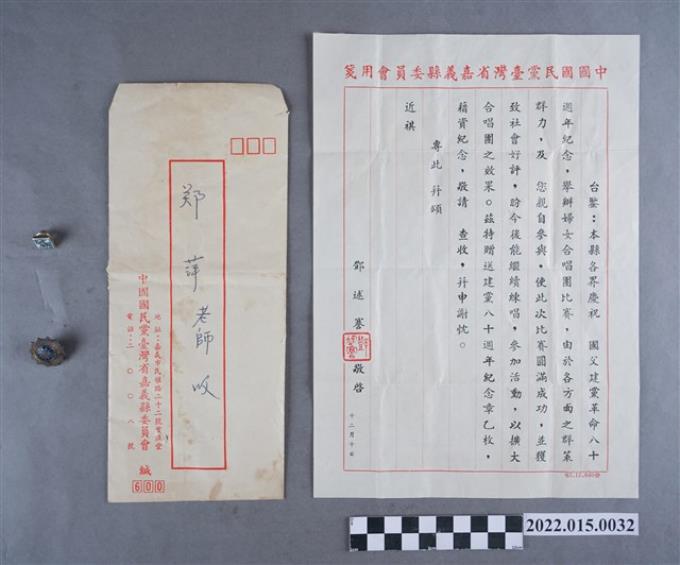 鄭萍 老師 收
地址：嘉義市民權路二十二號
電話：二〇〇八號
中國國民黨臺灣省嘉義縣委員會 緘
600
中國國民黨臺灣省嘉義縣委員會用箋
台鑒：本縣各界慶祝 國父建黨革命八十
週年紀念，舉辦婦女合唱團比賽，由於各方面之群策
群力，及 您親自參與，使此次比賽圓滿成功，並獲
致社會好評，盼今後能繼續練唱，參加活動，以擴大
合唱團之效果。茲特贈送建黨八十週年紀念章乙枚，
藉資紀念，敬請 查收，并申謝忱。
專此 并頌
近祺
鄧述謇 敬啓
十二月十日
2022.015.0032